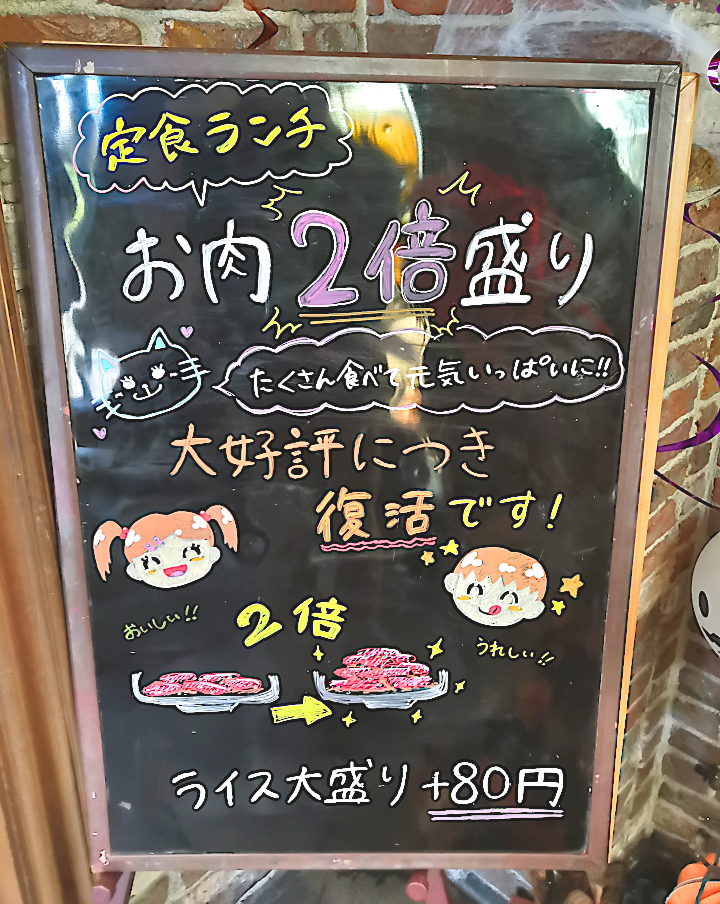 定食ランチ
お肉2倍盛り
たくさん食べて元気いっぱいに!!
大好評につき
復活です!
おいしい!!
2倍
うれしい!!
ライス大盛り+80円